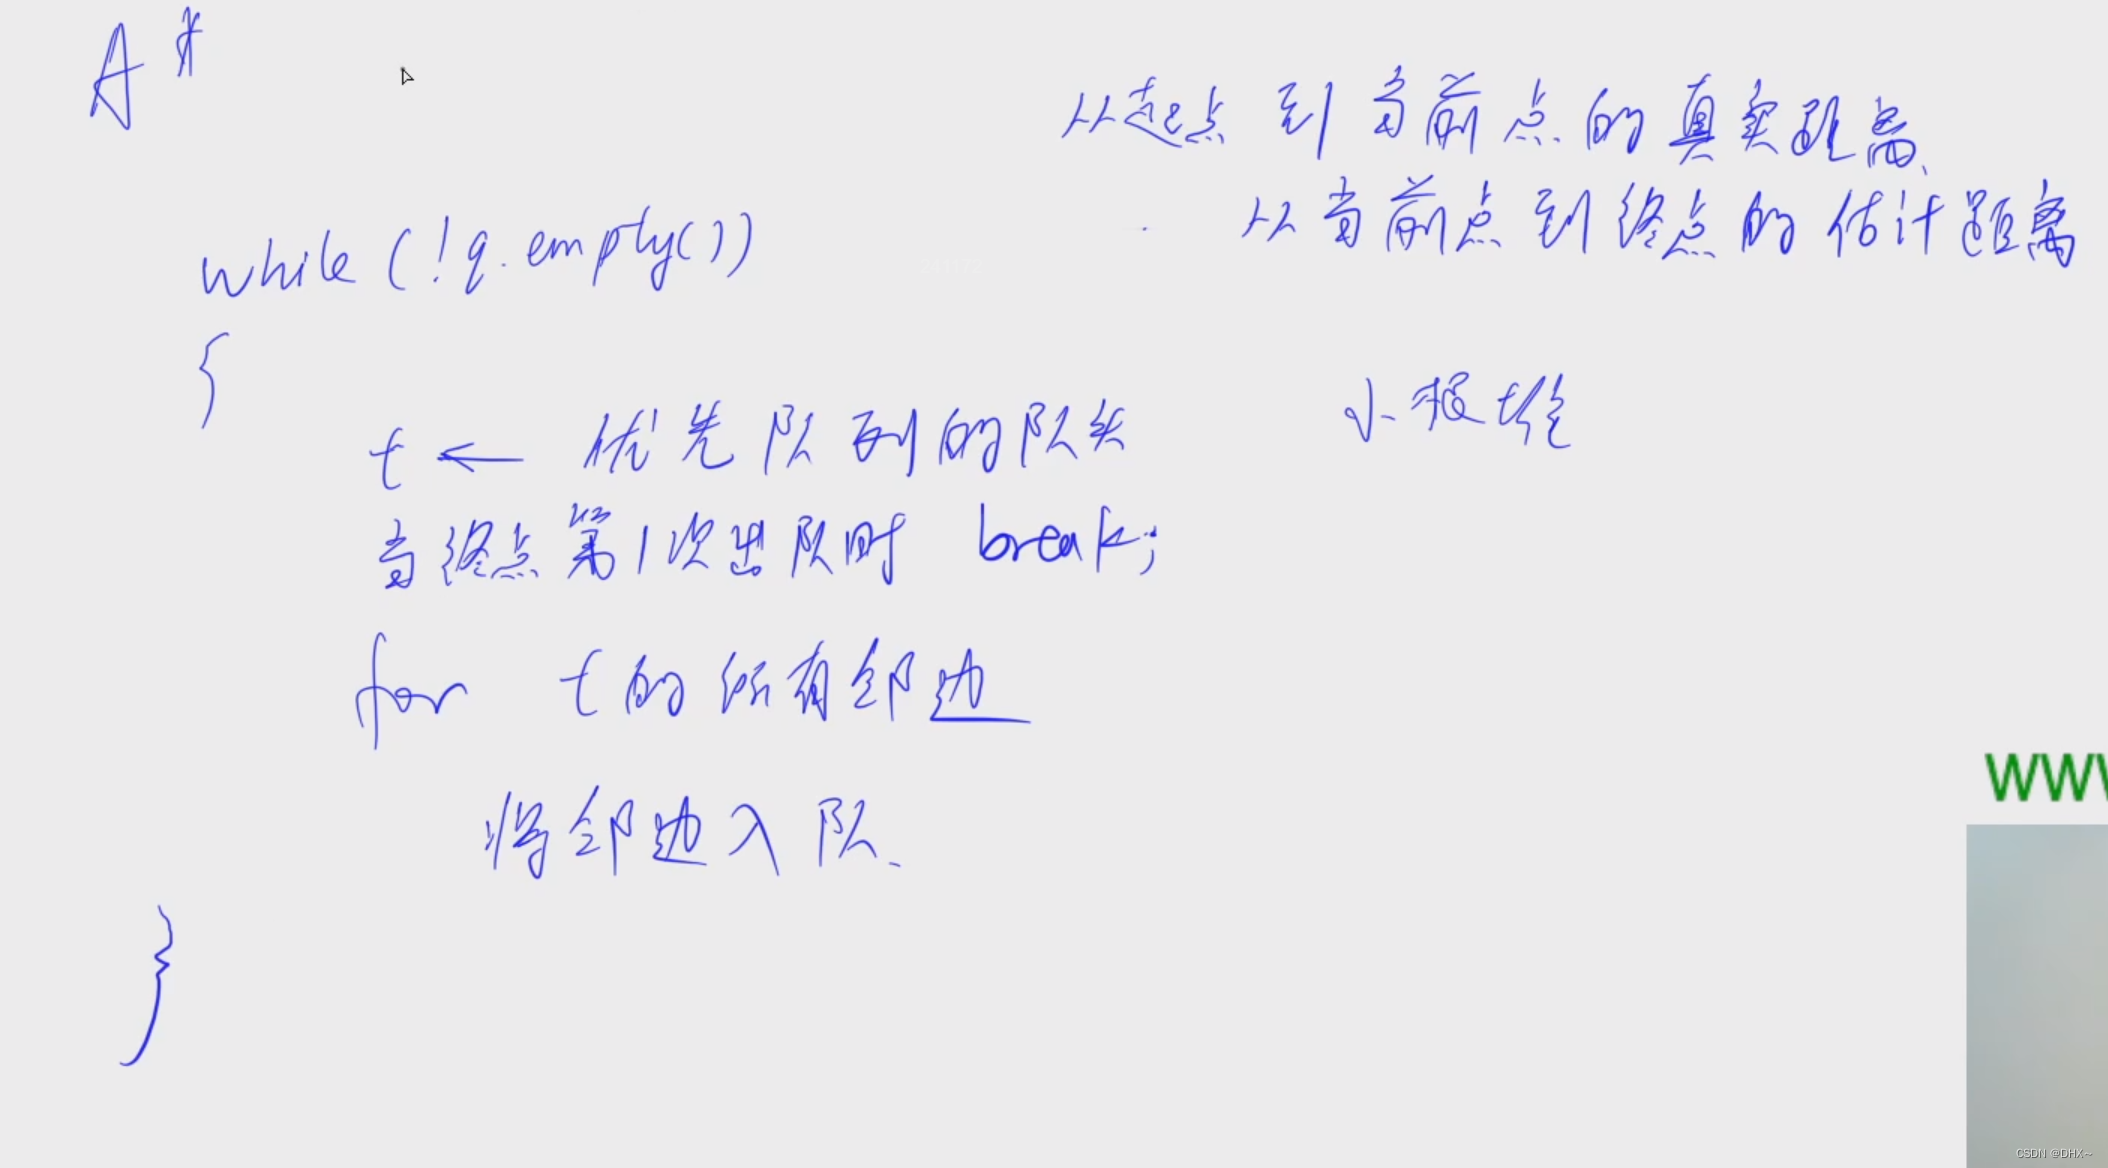 A*
从起点到当前点的真实距离
从当前点到终点的估计距离
while(!q.empty())
{
t ← 优先队列的队头
小根堆
当终点第1次出队时 break;
for t的所有邻边
将邻边入队.
}
WW
CSDN @DHX~